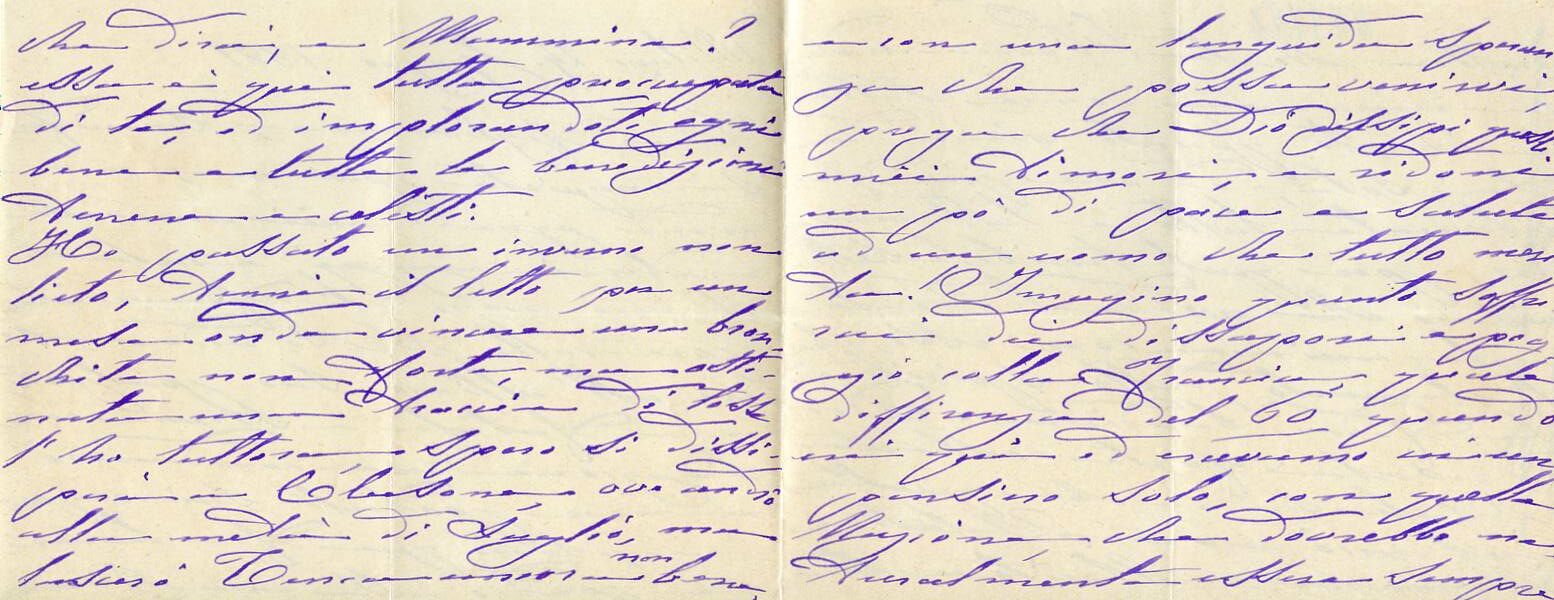 che dirai, a Mammina?
essa è qui tutta preoccupata
di te, ed implorandoti ogni
bene e tutte le benedizioni
terrene e celesti.
Ho passato un inverno non
lieto, tenni il letto per un
mese onde vincere una bron-
chite non forte, ma osti-
nata una traccia di tosse
l'ho tuttora, spero si dissi-
perà a Clusone, ove andrò
alla metà di Luglio, ma
lascerò Tenca ancora non bene,
e con una languida speran
za che possa venirvi,
prega che Dio dissipi questi
miei timori, e ridoni
un pò di pace e salute
ad un uomo che tutto meri
ta! Imagino quanto soffri
rai dei dissapori e peg
gio colla Francia, quale
differenza del 60 quando
eri quì ed eravamo in un
pensiero solo, con quella
Nazione, che dovrebbe na-
turalmente essere sempre